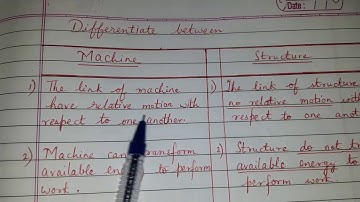 Date: 11
Differentiate between
Machine
Structure
1) The link of machine
have relative motion with
respect to one another.
1) The link of structure
no relative motion with
respect to one anot
2) Machine can transform
available en to perform
work.
2) Structure do not tr
available energy to
perform work